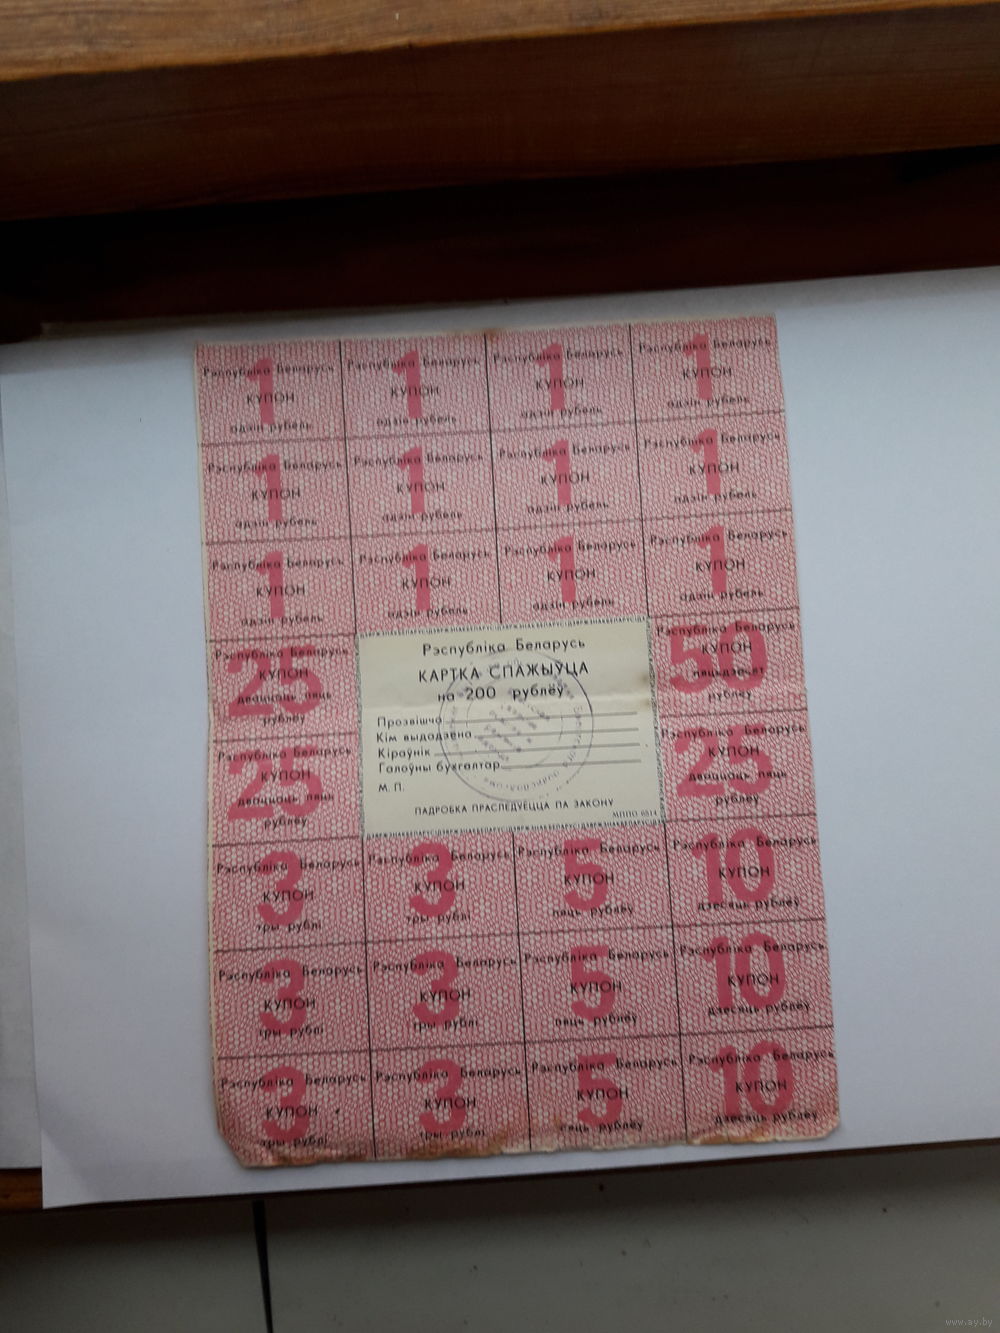 Рэспубліка Беларусь Рэспубліка Беларусь Рэспубліка Беларусь Рэспубліка Беларусь
1 1 1 1
КУПОН КУПОН КУПОН КУПОН
адзін рубель адзін рубель адзін рубель адзін рубель
Рэспубліка Беларусь Рэспубліка Беларусь Рэспубліка Беларусь Рэспубліка Беларусь
1 1 1 1
КУПОН КУПОН КУПОН КУПОН
адзін рубель адзін рубель адзін рубель адзін рубель
Рэспубліка Беларусь Рэспубліка Беларусь Рэспубліка Беларусь Рэспубліка Беларусь
1 1 1 1
КУПОН КУПОН КУПОН КУПОН
адзін рубель адзін рубель адзін рубель адзін рубель
Рэспубліка Беларусь
25
КУПОН
дваццаць пяць
рублёў
Рэспубліка Беларусь
25
КУПОН
дваццаць пяць
рублёў
Рэспубліка Беларусь
КАРТКА СПАЖЫЎЦА
на 200 рублёў
Прозвішча
Кім выдадзена
Кіраўнік
Галоўны бухгалтар
М. П.
ПАДРОБКА ПРАСЛЕДУЕЦЦА ПА ЗАКОНУ
Рэспубліка Беларусь
50
КУПОН
пяцьдзесят
рублёў
Рэспубліка Беларусь
25
КУПОН
дваццаць пяць
рублёў
Рэспубліка Беларусь Рэспубліка Беларусь Рэспубліка Беларусь Рэспубліка Беларусь
3 3 5 10
КУПОН КУПОН КУПОН КУПОН
тры рублі тры рублі пяць рублёў дзесяць рублёў
Рэспубліка Беларусь Рэспубліка Беларусь Рэспубліка Беларусь Рэспубліка Беларусь
3 3 5 10
КУПОН КУПОН КУПОН КУПОН
тры рублі тры рублі пяць рублёў дзесяць рублёў
Рэспубліка Беларусь Рэспубліка Беларусь Рэспубліка Беларусь Рэспубліка Беларусь
3 3 5 10
КУПОН КУПОН КУПОН КУПОН
тры рублі тры рублі пяць рублёў дзесяць рублёў
www.ay.by